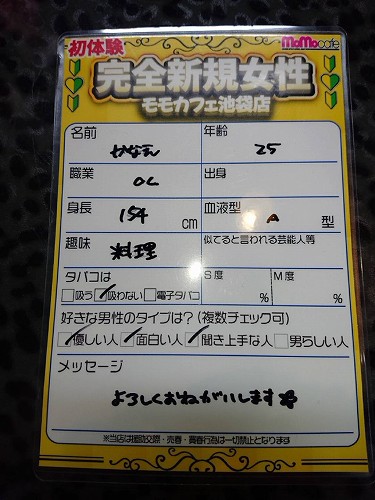 初体験
MoMocafe
完全新規女性
モモカフェ池袋店
名前 かなえ 年齢 25
職業 OL 出身
身長 154 cm 血液型 A 型
趣味 料理 似てると言われる芸能人等
タバコは S度 M度
吸う 吸わない 電子タバコ % %
好きな男性のタイプは?(複数チェック可)
優しい人 面白い人 聞き上手な人 男らしい人
メッセージ
よろしくおねがいします
※当店は援助交際・売春・買春行為は一切禁止となります